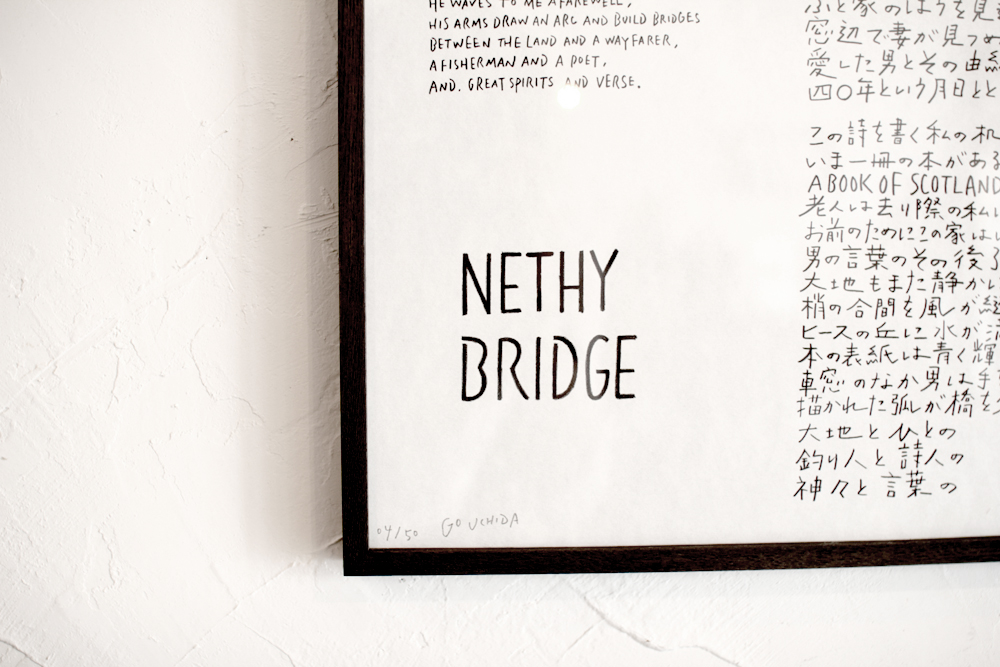 HE WAVES TO ME A FAREWELL,
HIS ARMS DRAW AN ARC AND BUILD BRIDGES
BETWEEN THE LAND AND A WAYFARER,
A FISHERMAN AND A POET,
AND. GREAT SPIRITS AND VERSE.
NETHY
BRIDGE
04/50 GO UCHIDA
ふと家のほうを見
窓辺で妻が見つめ
愛した男とその由緒
四〇年という月日とと
この詩を書く私の机
いま一冊の本がある
A BOOK OF SCOTLAND
老人は去り際の私に
お前のためにこの家は
男の言葉のその後
大地もまた静かい
梢の合間を風が
ピースの丘に水が
本の表紙は青く輝
車窓のなか男は手
描かれた弧が橋を
大地とひとの
釣り人と詩人の
神々と言葉の